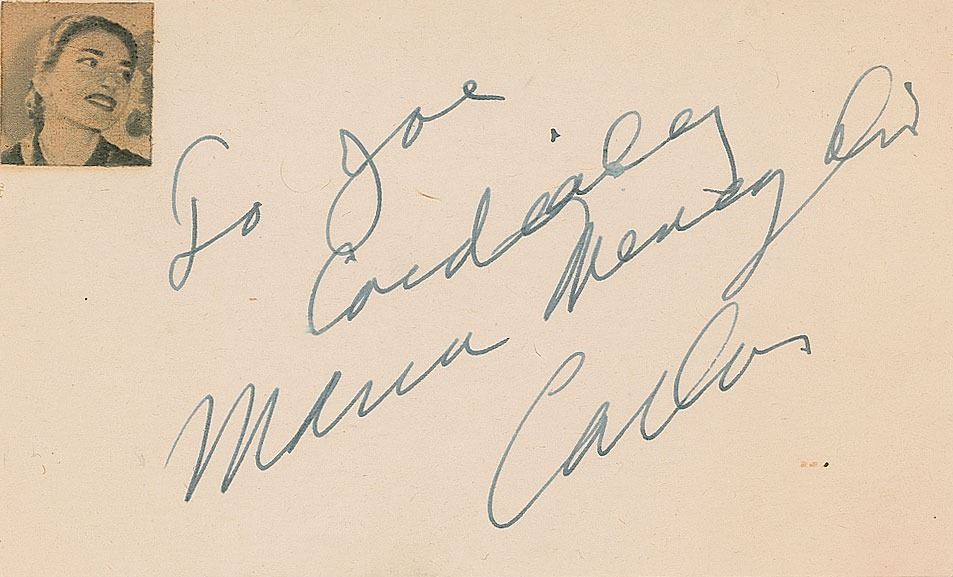 To Joe
Cordialy
Maria Meneghini
Callas